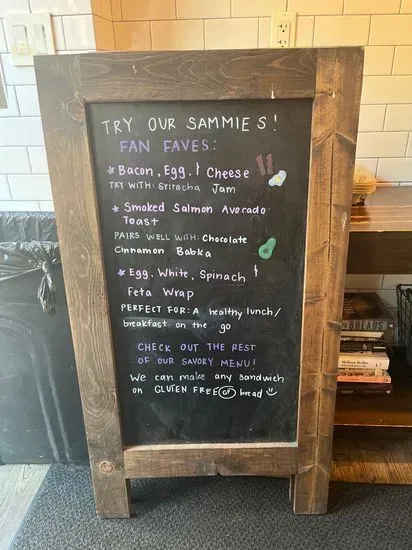 TRY OUR SAMMIES!
FAN FAVES:
* Bacon, Egg, & Cheese
TRY WITH: Sriracha Jam
* Smoked Salmon Avocado
Toast
PAIRS WELL WITH: Chocolate
Cinnamon Babka
* Egg White, Spinach &
Feta Wrap
PERFECT FOR: A healthy lunch/
breakfast on the go
CHECK OUT THE REST
OF OUR SAVORY MENU!
We can make any sandwich
on GLUTEN FREE GF bread
BREADS